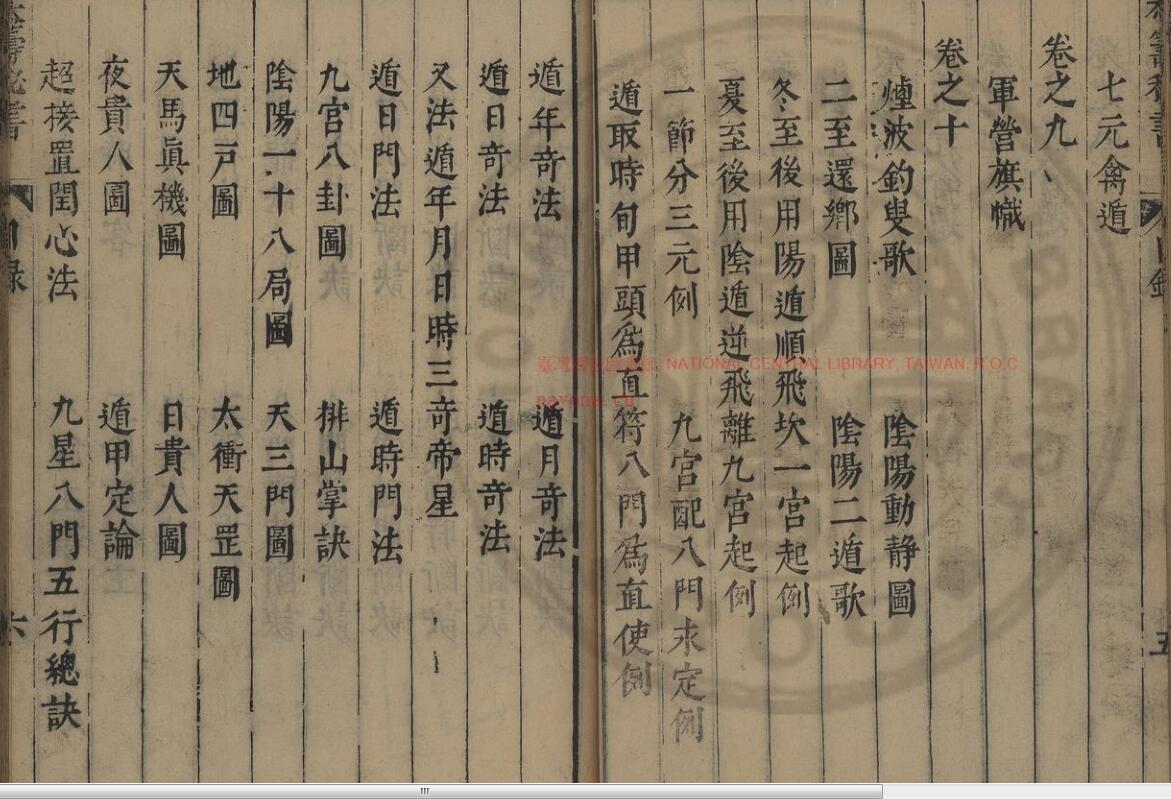 七元禽遁
卷之九
軍營旗幟
卷之十
煙波釣叟歌　陰陽動靜圖
二至還鄉圖　陰陽二遁歌
冬至後用陽遁順飛坎一宮起例
夏至後用陰遁逆飛離九宮起例
一節分三元例　九宮配八門求定例
遁取時旬甲頭為直符八門為直使例
遁年奇法　遁月奇法
遁日奇法　遁時奇法
又法遁年月日時三奇帝星
遁日門法　遁時門法
九宮八卦圖　排山掌訣
陰陽一十八局圖　天三門圖
地四戸圖　太衝天罡圖
天馬眞機圖　日貴人圖
夜貴人圖　遁甲定論
超接置閏心法　九星八門五行總訣
目錄　六
NATIONAL CENTRAL LIBRARY, TAIWAN, R.O.C